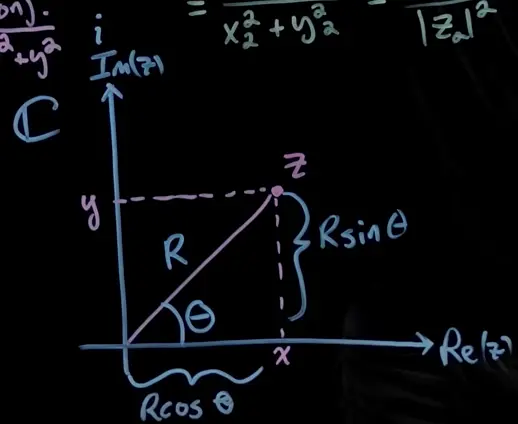 on).
² + y²
= x₂² + y₂² = |z₂|²
i
Im(z)
ℂ
z
y
R
R sin θ
θ
x
Re(z)
R cos θ